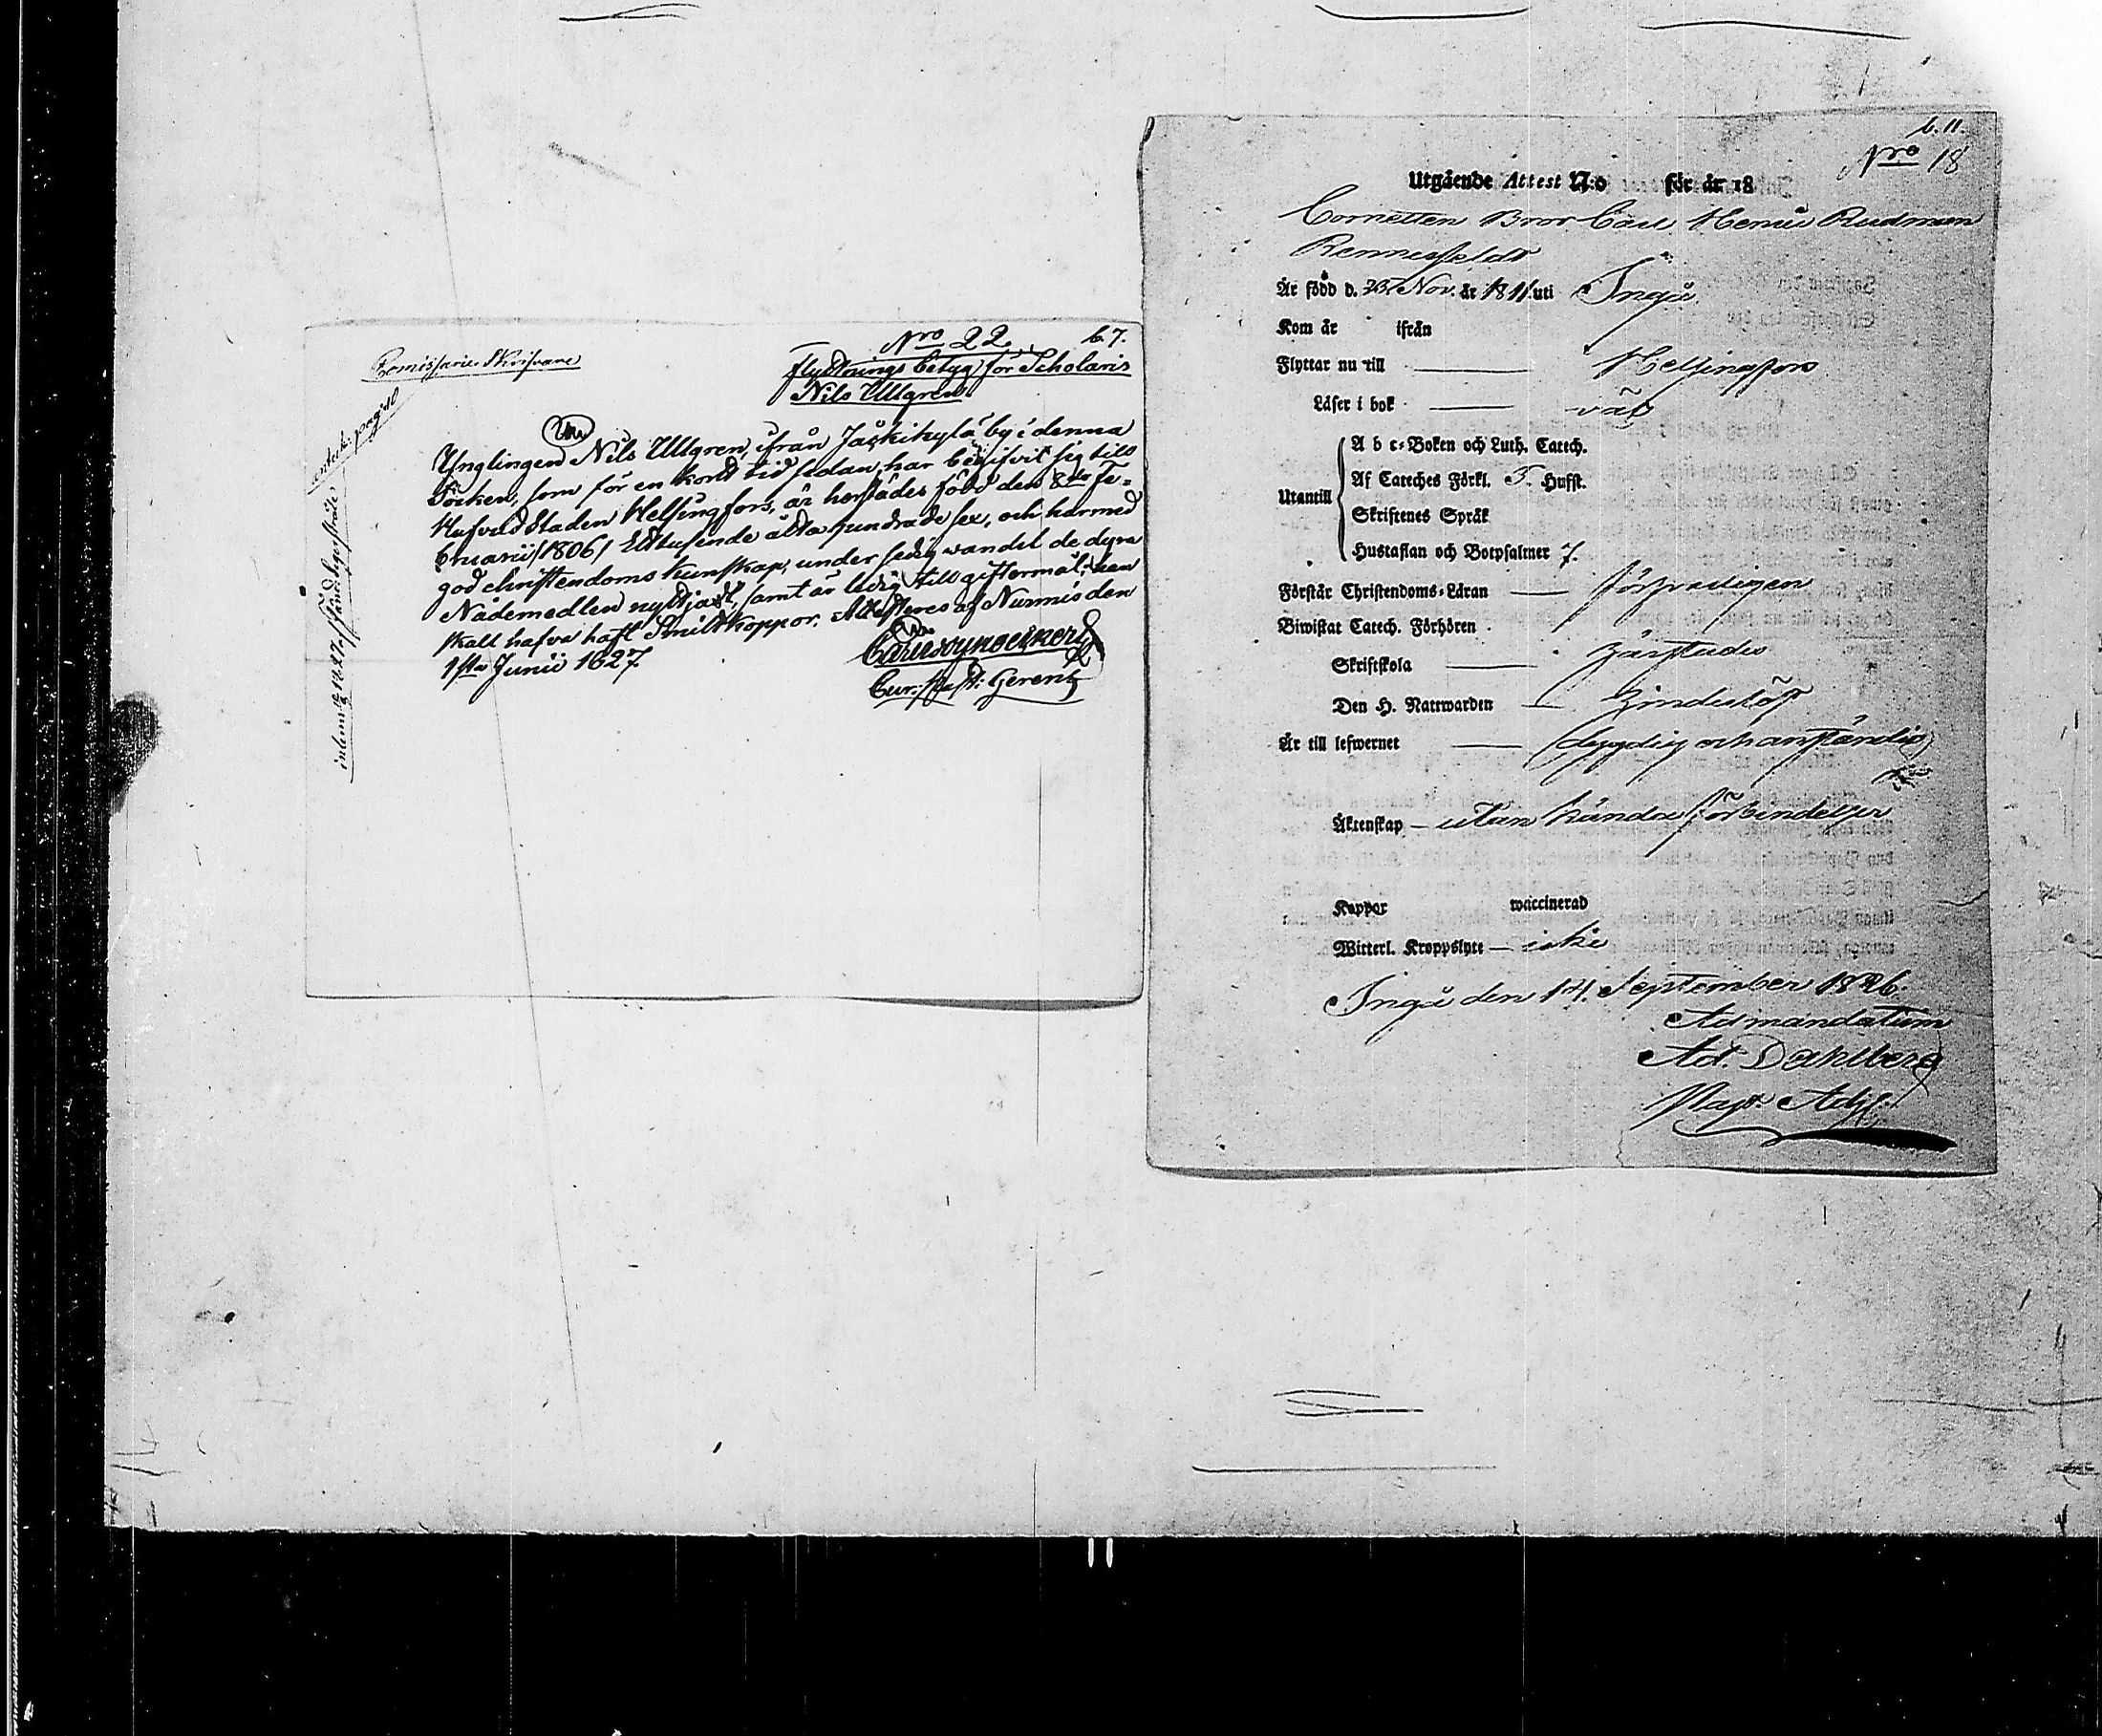 Nro 22. b.7.
Flyttnings betyg för Scholaris
Nils Ullgren.
Comissarie Skrifvare
Ynglingen Nils Ullgren, ifrån Jäskikylä by i denna
Socken, som för en kort tid sedan har begifvit sig till
Hufvud Staden Helsingfors, är härstädes född den 8de Fe-
bruarii /1806/ Ettusende åttahundrade sex, och har med
god christendoms kunskap, under sedig wandel de dyra
Nådemedlen nyttjadt, samt är ledig till giftermål; han
skall hafva haft Smittkoppor. Attesteres af Nurmis den
1sta Junii 1827
Cur: Past: Gerens
b. 11.
Nro 18
Utgående Attest N:o för år 18
Cornetten Bror Carl Henric Rudman
Är född d. 23. Nov. år 1811. uti Ingå
Kom år ifrån
Flyttar nu till Helsingfors
Läser i bok väl
Utantill
A b c-Boken och Luth. Catech.
Af Cateches Förkl. 5. Hufst.
Skriftenes Språk
Hustaflan och Botpsalmer 7.
Förstår Christendoms-Läran försvarligen
Biwistat Catech. Förhören
Skriftskola härstädes
Den H. Nattwarden
Är till lefwernet dygdig och anständig
Äktenskap – utan kända förbindelser
Koppor waccinerad
Witterl. Kroppslyte – icke
Ingå den 14. September 1826.
Ad mandatum
Ad. Dahlberg
Past. Adj.